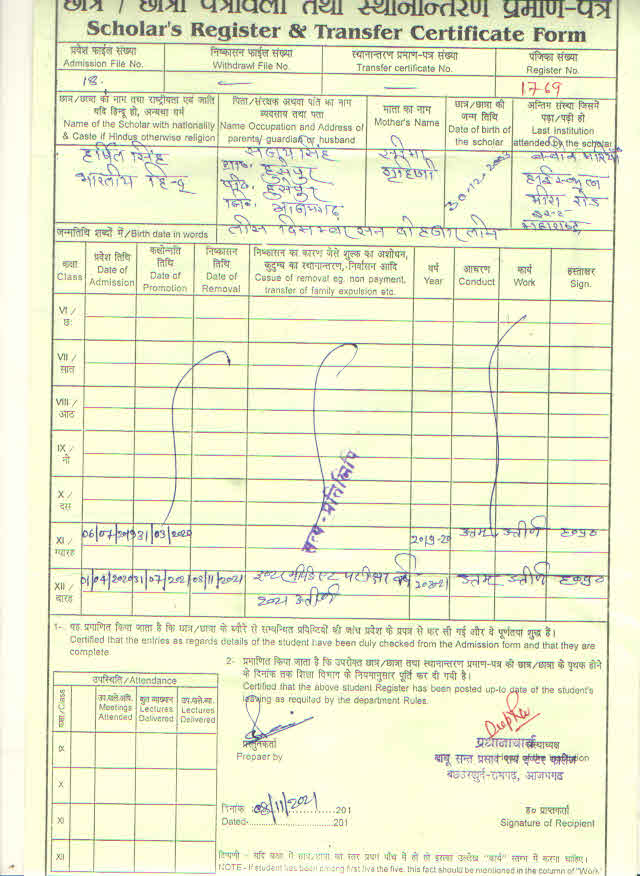 छात्र / छात्रा पंजावली तथा स्थानान्तरण प्रमाण-पत्र
Scholar's Register & Transfer Certificate Form
प्रवेश फाईल संख्या
Admission File No.
निष्कासन फाईल संख्या
Withdrawl File No.
स्थानान्तरण प्रमाण-पत्र संख्या
Transfer certificate No.
पंजिका संख्या
Register No.
18.
1769
छात्र/छात्रा का नाम तथा राष्ट्रीयता एवं जाति
यदि हिन्दू हो, अन्यथा धर्म
Name of the Scholar with nationality
& Caste if Hindus otherwise religion
पिता/संरक्षक अथवा पति का नाम
व्यवसाय तथा पता
Name Occupation and Address of
parents/ guardian or husband
माता का नाम
Mother's Name
छात्र/छात्रा की
जन्म तिथि
Date of birth of
the scholar
अन्तिम संस्था जिसमें
पढ़ा/पढ़ी हो
Last Institution
attended by the scholar
हर्षित सिंह
भारतीय हिन्दू
संजय सिंह
हुसेपुर
हुसेपुर
आजमगढ़
गृहणी
30-12-2003
हाईस्कूल
मीरा रोड
जन्मतिथि शब्दों में/Birth date in words
तीस दिसम्बर सन दो हजार तीन
कक्षा
Class
प्रवेश तिथि
Date of
Admission
कक्षोन्नति
तिथि
Date of
Promotion
निष्कासन
तिथि
Date of
Removal
निष्कासन का कारण जेसे शुल्क का अशोधन,
कुटुम्ब का स्थानान्तरण,-निर्वासन आदि
Casue of removal eg. non payment,
transfer of family expulsion etc.
वर्ष
Year
आचरण
Conduct
कार्य
Work
हस्ताक्षर
Sign.
VI /
छः
VII /
सात
VIII /
आठ
IX /
नौ
X /
दस
सत्य-प्रतिलिपि
XI /
ग्यारह
06/07/2019
31/03/2020
2019-20
उत्तम
उत्तीर्ण
ह०प्र०
XII /
बारह
01/04/2020
31/07/2021
08/11/2021
इण्टरमीडिएट परीक्षा वर्ष
2021 उत्तीर्ण
2020-21
उत्तम
उत्तीर्ण
ह०प्र०
1-. यह प्रमाणित किया जाता है कि छात्र/छात्रा के ब्यौरे से सम्बन्धित प्रविष्टियों की जांच प्रवेश के प्रपत्र से कर ली गई और वे पूर्णतया शुद्ध है।
Certified that the entries as regards details of the student have been duly checked from the Admission form and that they are
complete.
2- प्रमाणित किया जाता है कि उपरोक्त छात्र/छात्रा तथा स्थानान्तरण प्रमाण-पत्र की छात्र/छात्रा के पृथक होने
के दिनांक तक शिक्षा विभाग के नियमानुसार पूर्ति कर दी गयी है।
Certified that the above student Register has been posted up-to date of the student's
leaving as required by the department Rules.
उपस्थिति/Attendance
कक्षा/Class
Meetings
Attended
कुल व्याख्यान
Lectures
Delivered
Lectures
Delivered
IX
X
XI
XII
प्रस्तुतकर्ता
Prepaer by
प्रधानाचार्य
बाबू सन्त प्रसाद राय इण्टर कालेज
दिनांक
08/11/2021
201
Dated-
201
ह० प्राप्तकर्ता
Signature of Recipient
टिप्पणी - यदि कक्षा में छात्र/छात्रा का स्तर प्रथम पाँच में हो तो इसका उल्लेख "कार्य" स्तम्भ में करना चाहिए।
NOTE - If student has been among first five the five, this fact should be mentioned in the column of "Work"